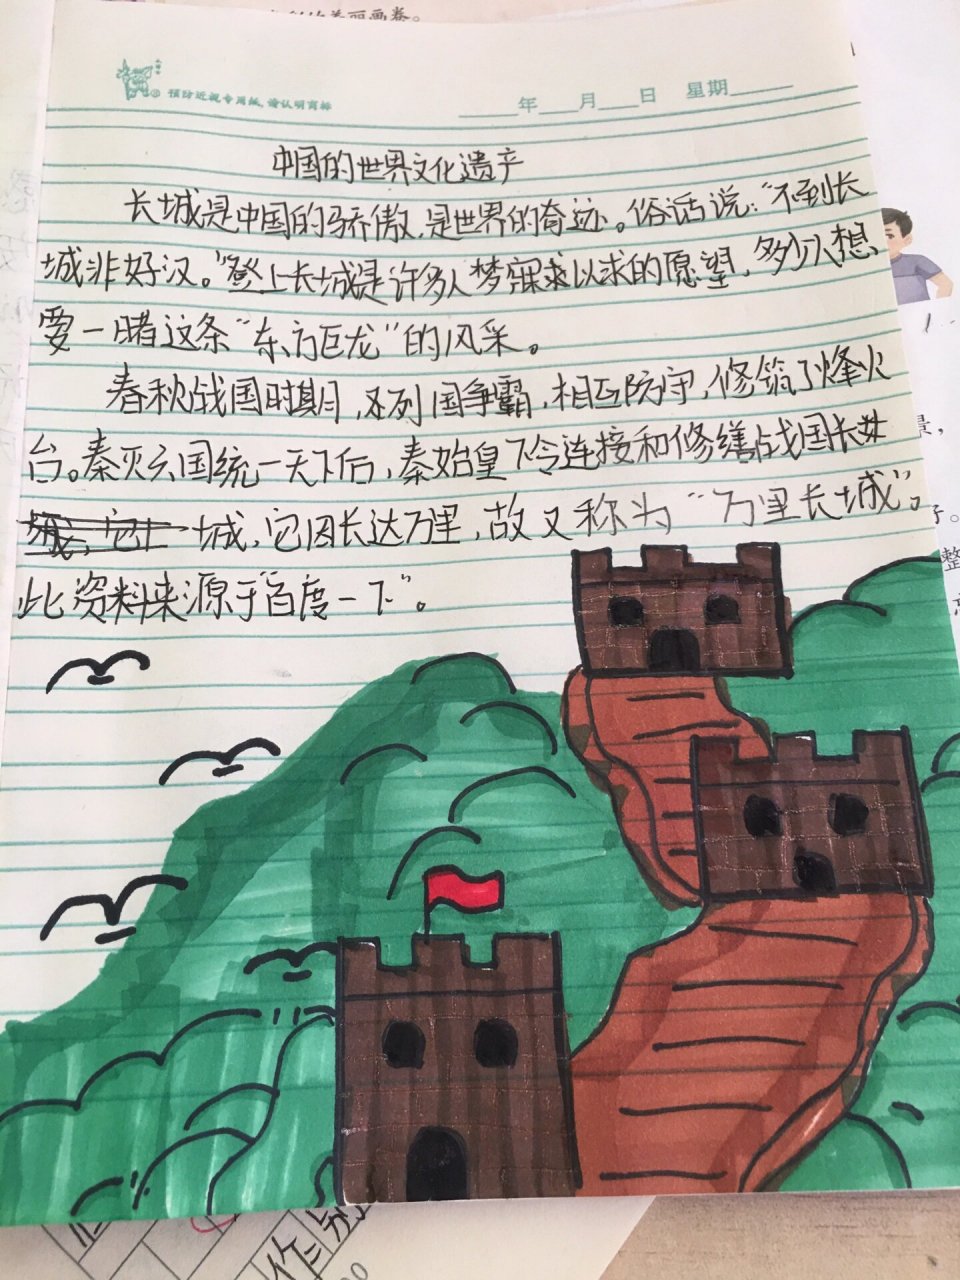 预防近视专用纸,请认明商标
年 月 日 星期
中国的世界文化遗产
长城是中国的骄傲,是世界的奇迹。俗话说:“不到长
城非好汉。”登上长城是许多人梦寐求以求的愿望,多少人想
要一睹这条“东方巨龙”的风采。
春秋战国时期,列国争霸,相互防守,修筑了烽火
台。秦灭六国统一天下后,秦始皇下令连接和修缮战国长
城,它因长达万里,故又称为“万里长城”。
此资料来源于“百度一下”。